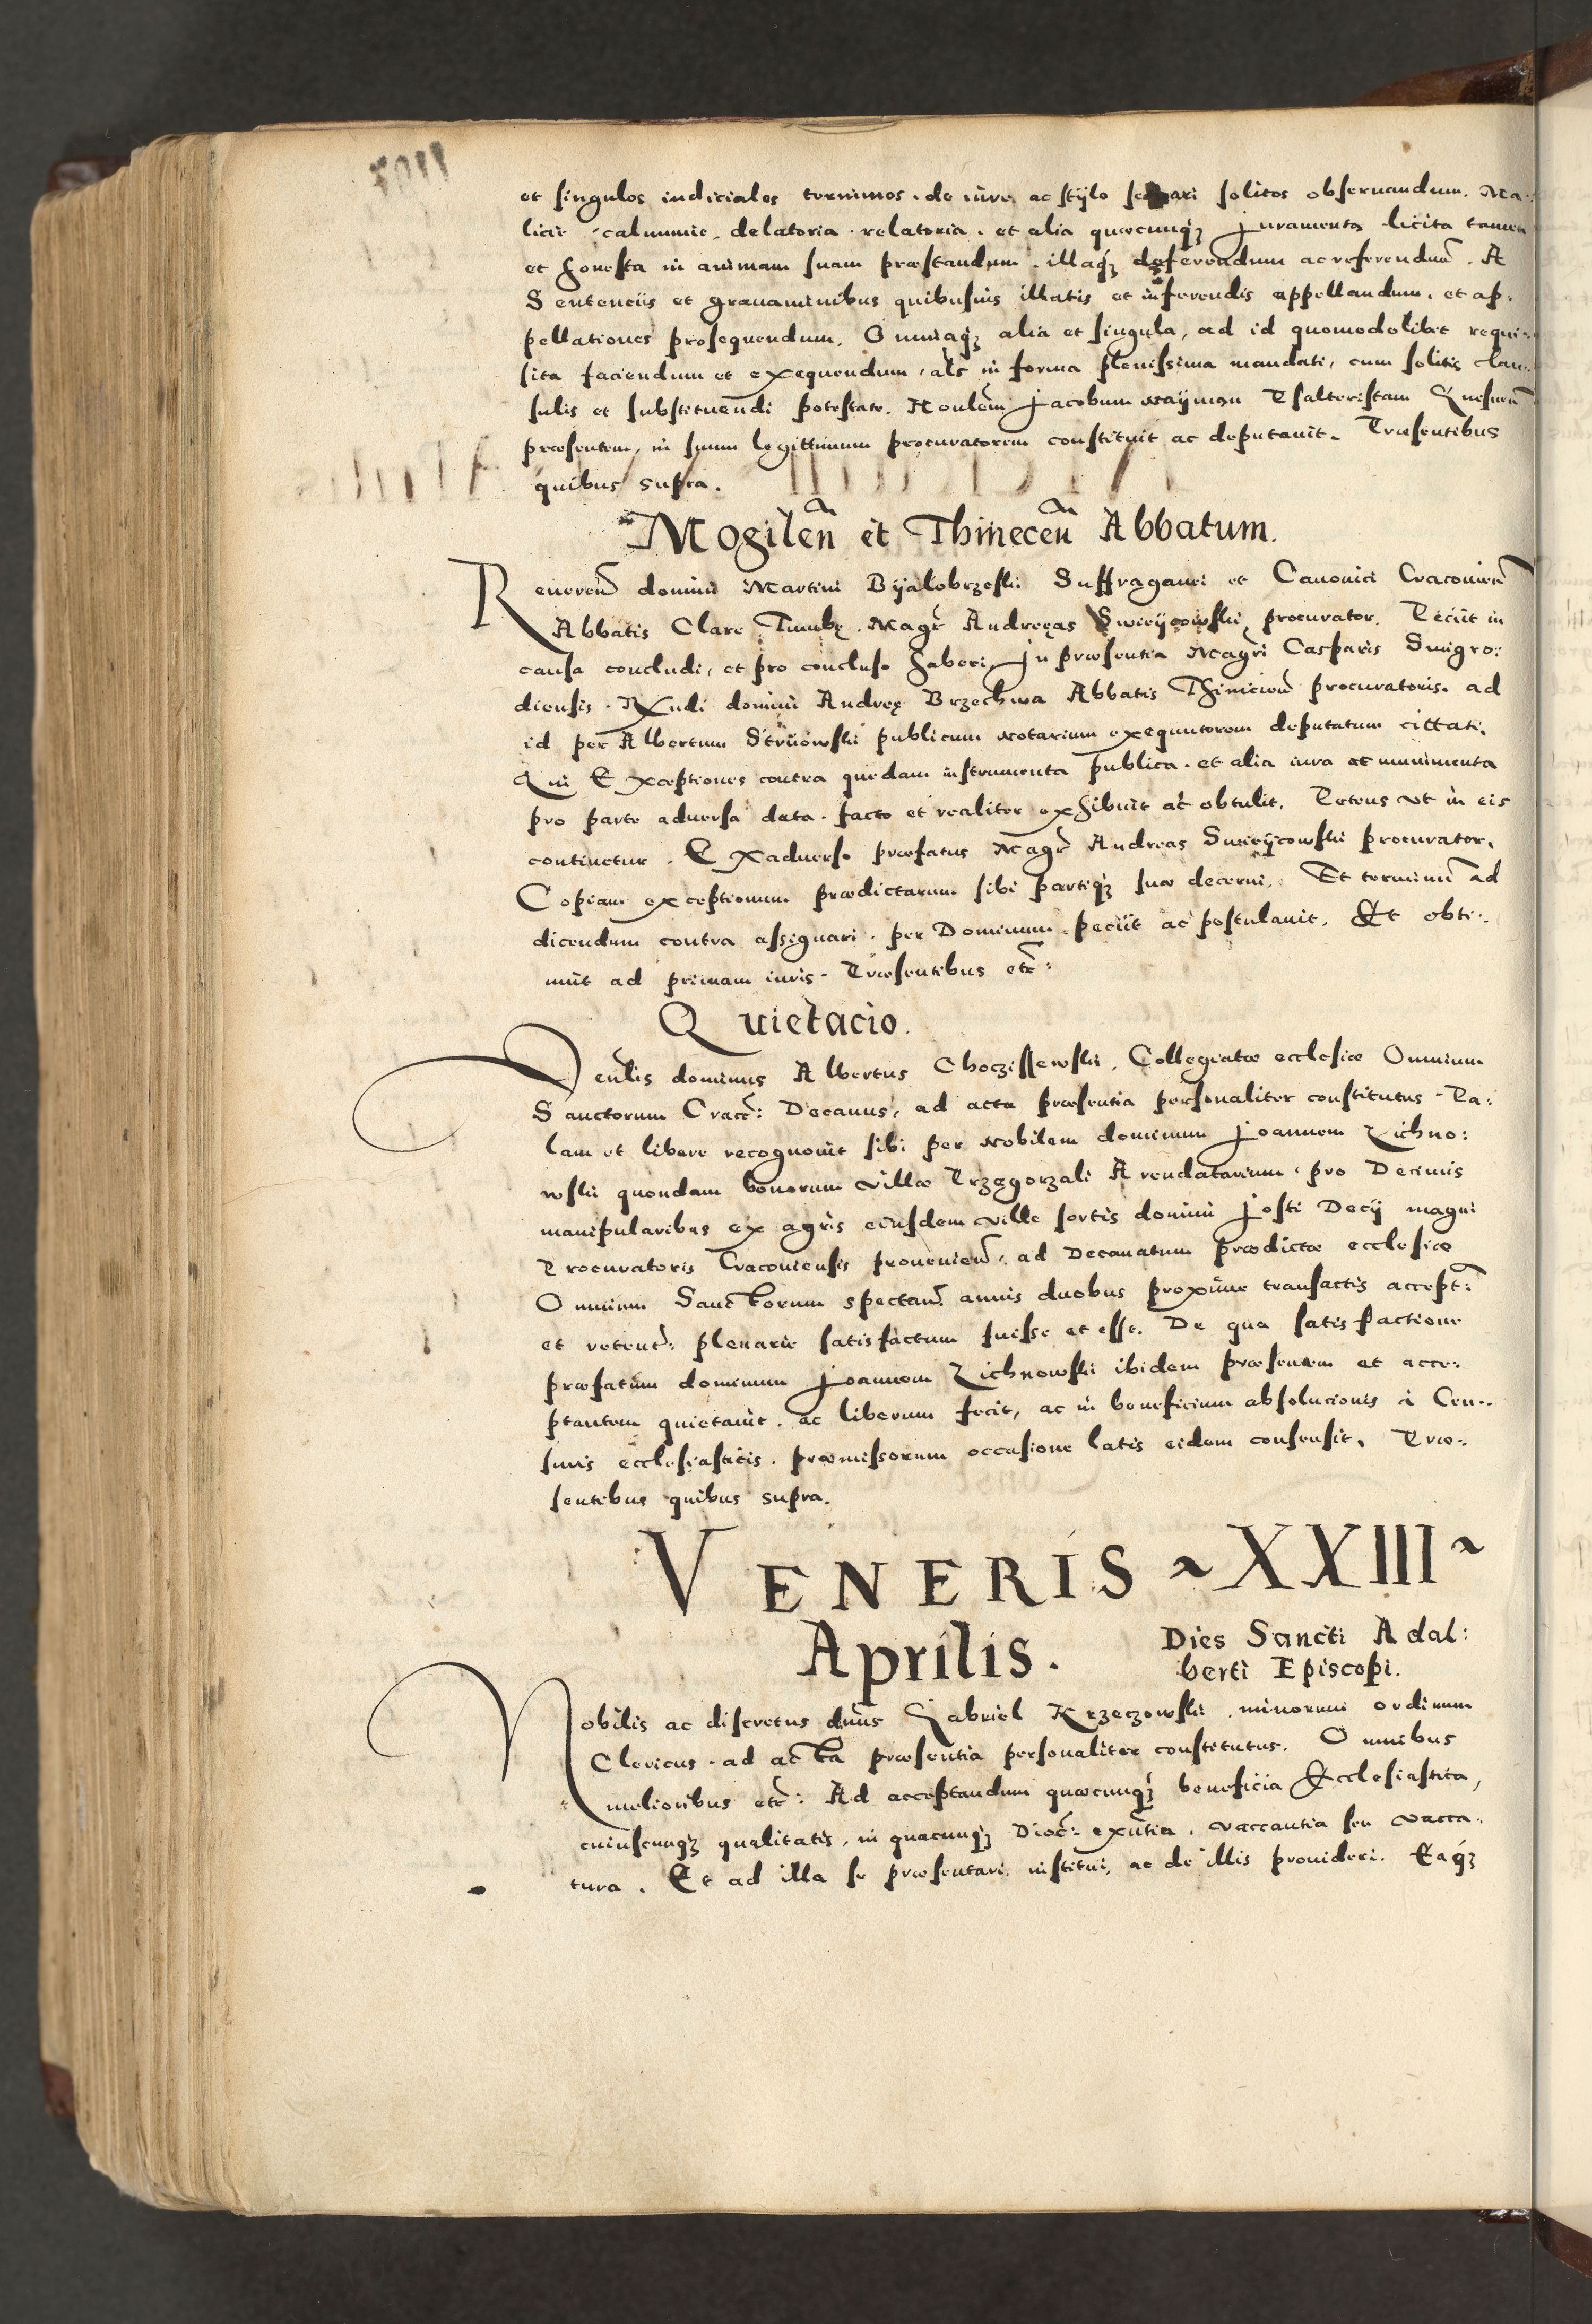 et singulos iudiciales terminos. de iure ac stylo seruari solitos obseruandum. Ma:
licie, calumnie, delatoria. relatoria. et alia quæcunq̃ Juramenta licita tamen
et honesta in animam suam præstandum. illaq́ deferendum ac referendũ. A
Sentenciis et grauaminibus quibusuis illatis et inferendis appellandum. et ap:
pellationes prosequendum. Omniaq́ alia et singula, ad id quomodolibet requi:
sita faciendum et exequendum, als in forma plenissima mandati, cum solitis clau:
sulis et substituendi potestate. Jacobum Psalteristam Gnesnen̄
præsentem, in suum legittimum procuratorem constituit ac deputauit. Præsentibus
quibus supra.
Mogilen̄ et Thinecen̄ Abbatum.
Reueren̄ domini Martini Byalobrzeski Suffraganei et Canonici Cracouien̄
Abbatis Clare Tumbę. Magr̃ Andreęas Swieycowski, procurator. Petiit in
causa concludi, et pro concluso haberi. In præsentia Magr̃i Casparis Smigro:
diensis. Rn̄di domini Andreę Brzechwa Abbatis Thinicien̄ procuratoris. ad
id per Albertum Struowski publicum notarium exequutorem deputatum cittati.
Qui Exceptiones contra quędam instrumenta publica. et alia iura et munimenta
pro parte aduersa data. facto et realiter exhibuit ac obtulit. Petens vt in eis
continetur. Exaduerso præfatus Magr̃ Andreas Swieycowski procurator.
Copiam exceptionum prædictarum sibi partiq́ suæ decerni. Et terminũ ad
dicendum contra assignari. per Dominum petiit ac postulauit. Et obti:
nuit ad primam iuris. Præsentibus etc̃:
Quietacio.
Venlis dominus Albertus Choczissewski. Collegiatæ ecclesiæ Omnium
Sanctorum Cracc̃: Decanus, ad acta præsentia personaliter constitutus. Pa:
lam et libere recognouit sibi per Nobilem dominum Joannem Zichno:
wski quondam bonorum villæ Przegorzali Arendatarium. pro Decimis
manipularibus ex agris eiusdem ville sortis domini Josti Decij magni
Procuratoris Cracouiensis prouenien̄. ad Decanatum prædictæ ecclesiæ
Omnium Sanctorum spectan̄. annis duobus proxime transactis accept̃:
et retent̃: plenarie satisfactum fuisse et esse. De qua satisfactione
præfatum dominum Joannem Zichnowski ibidem præsentem et acce:
ptantem quietauit. ac liberum fecit, ac in beneficium absolucionis à Cen:
suris ecclesiasticis. præmissorum occasione latis eidem consensit. Præ:
sentibus quibus supra.
VENERIS ~ XXIII ~
Aprilis.
Dies Sancti Adal:
berti Episcopi.
Nobilis ac discretus dñus Gabriel Krzeczowski. minorum ordinum
Clericus. ad acta præsentia personaliter constitutus. Omnibus
melioribus etc̃: Ad acceptandum quæcunq́ beneficia Ecclesiastica,
cuiuscunq́ qualitatis, in quacunq́ Dioc̃: exñtia. vaccantia seu vacca:
tura. Et ad illa se præsentari, institui, ac de illis prouideri. Eaq́